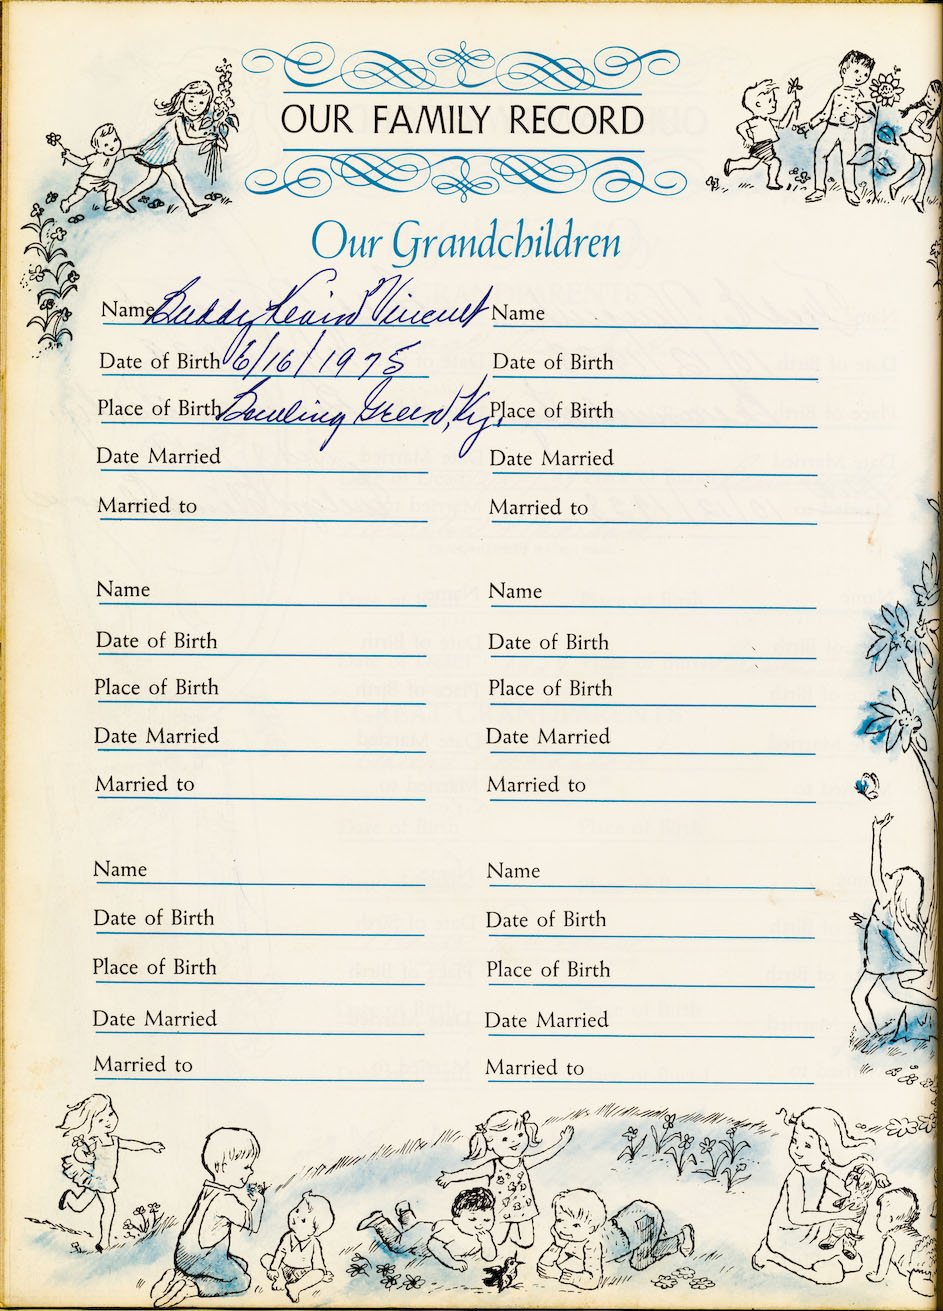 OUR FAMILY RECORD
Our Grandchildren
Name Buddy Kevin Vincent
Date of Birth 6/16/1975
Place of Birth Bowling Green, Ky.
Date Married
Married to
Name
Date of Birth
Place of Birth
Date Married
Married to
Name
Date of Birth
Place of Birth
Date Married
Married to
Name
Date of Birth
Place of Birth
Date Married
Married to
Name
Date of Birth
Place of Birth
Date Married
Married to
Name
Date of Birth
Place of Birth
Date Married
Married to